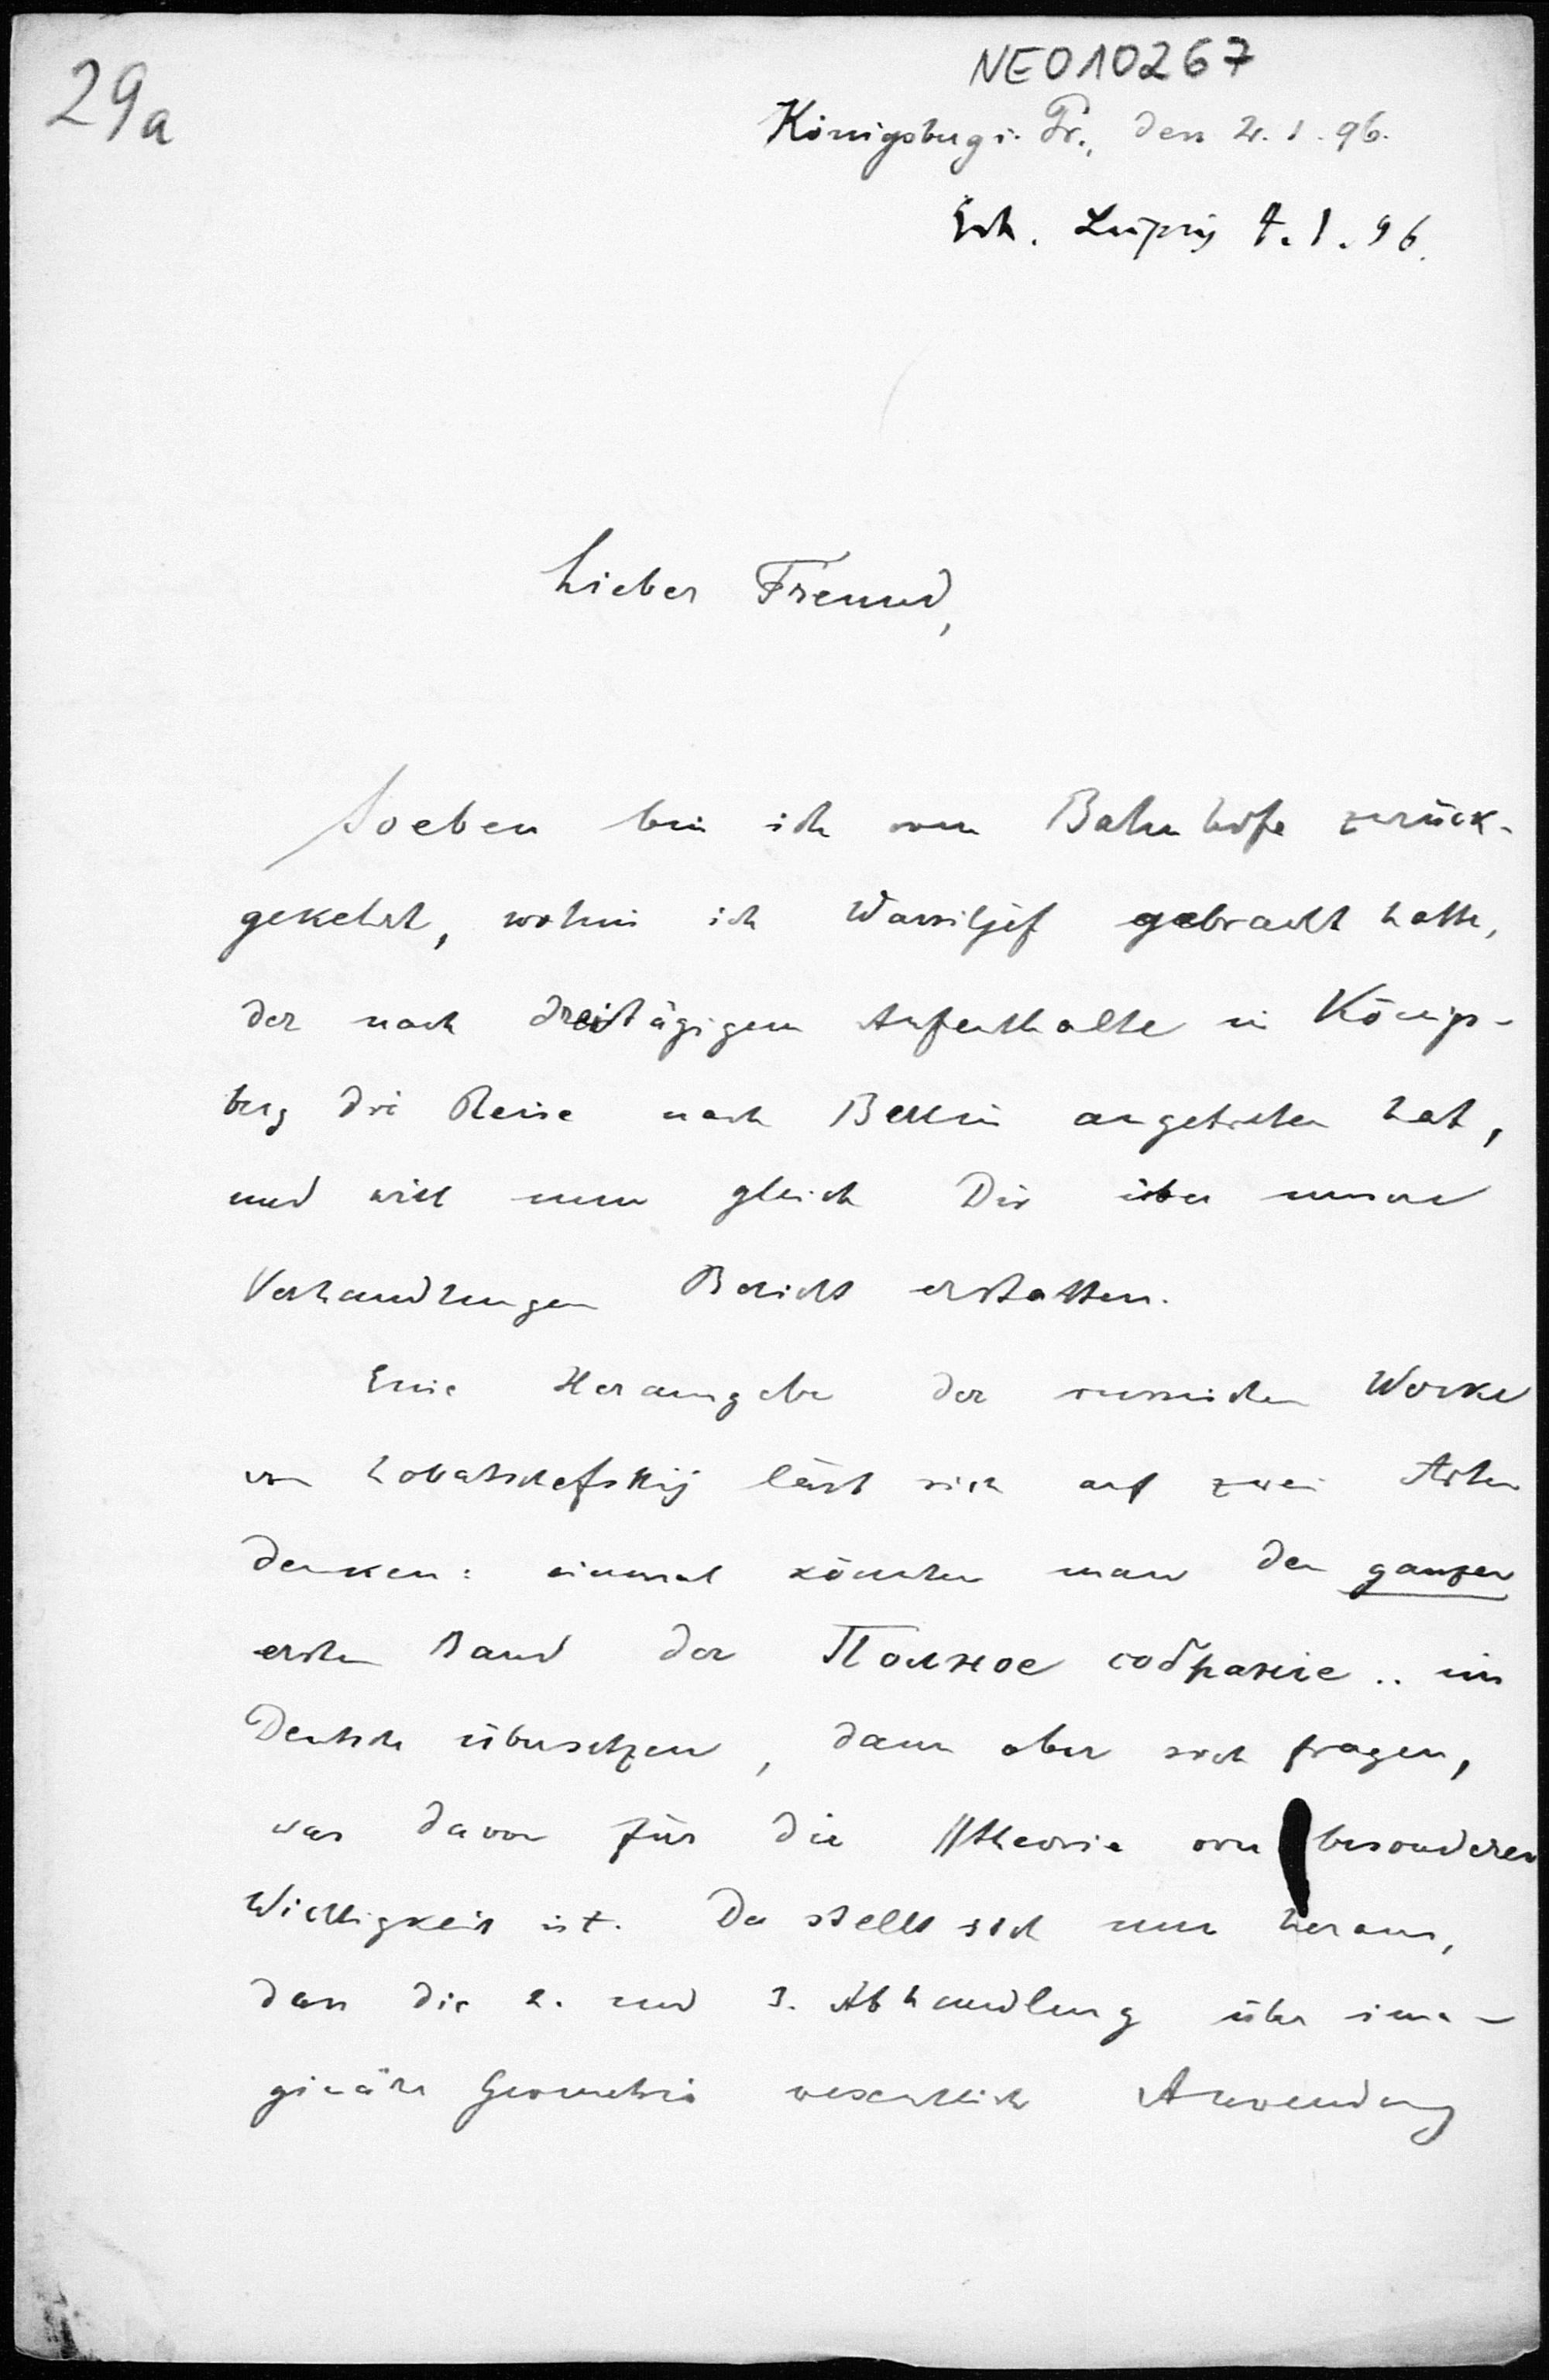 29a
NE010267
Königsberg i. Pr., den 2. 1. 96.
Erh. Leipzig 4. 1. 96.
Lieber Freund,
Soeben bin ich vom Bahnhofe zurück-
gekehrt, wohin ich Wassiljef gebracht hatte,
der nach dreitägigem Aufenthalte in Königs-
berg die Reise nach Berlin angetreten hat,
und will nun gleich Dir über unsere
Verhandlungen Bericht erstatten.
Eine Herausgabe der russischen Werke
von Lobatschefskij lässt sich auf zwei Arten
denken: einmal könnte man den ganzen
ersten Band der Полное собранiе .. ins
Deutsche übersetzen, dann aber sich fragen,
was davon für die //theorie von besonderer
Wichtigkeit ist. Da stellt sich nun heraus,
dass die 2. und 3. Abhandlung über ima-
ginäre Geometrie wesentlich Anwendung